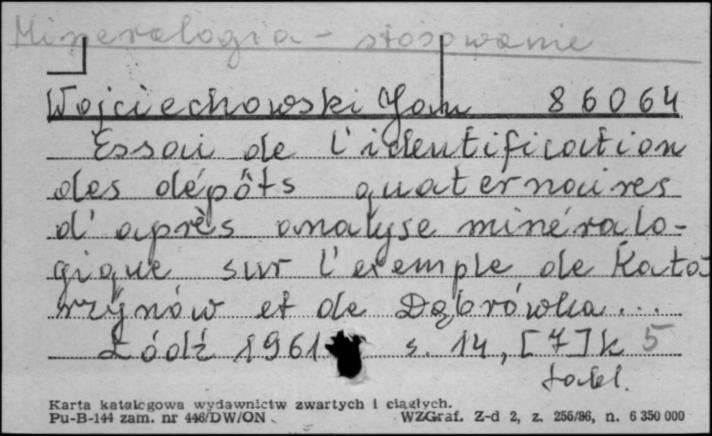 Mineralogia - stosowanie
Wojciechowski Jan 86064
Essai de l'identification
des dépôts quaternaires
d'après analyse minéralo-
gique sur l'exemple de Kata-
rzynów et de Dąbrówka...
Łódź 1961 s. 14, [7] k 5
tabl.
Karta katalogowa wydawnictw zwartych i ciągłych.
Pu-B-144 zam. nr 446/DW/ON WZGraf. Z-d 2, z. 256/86, n. 6 350 000